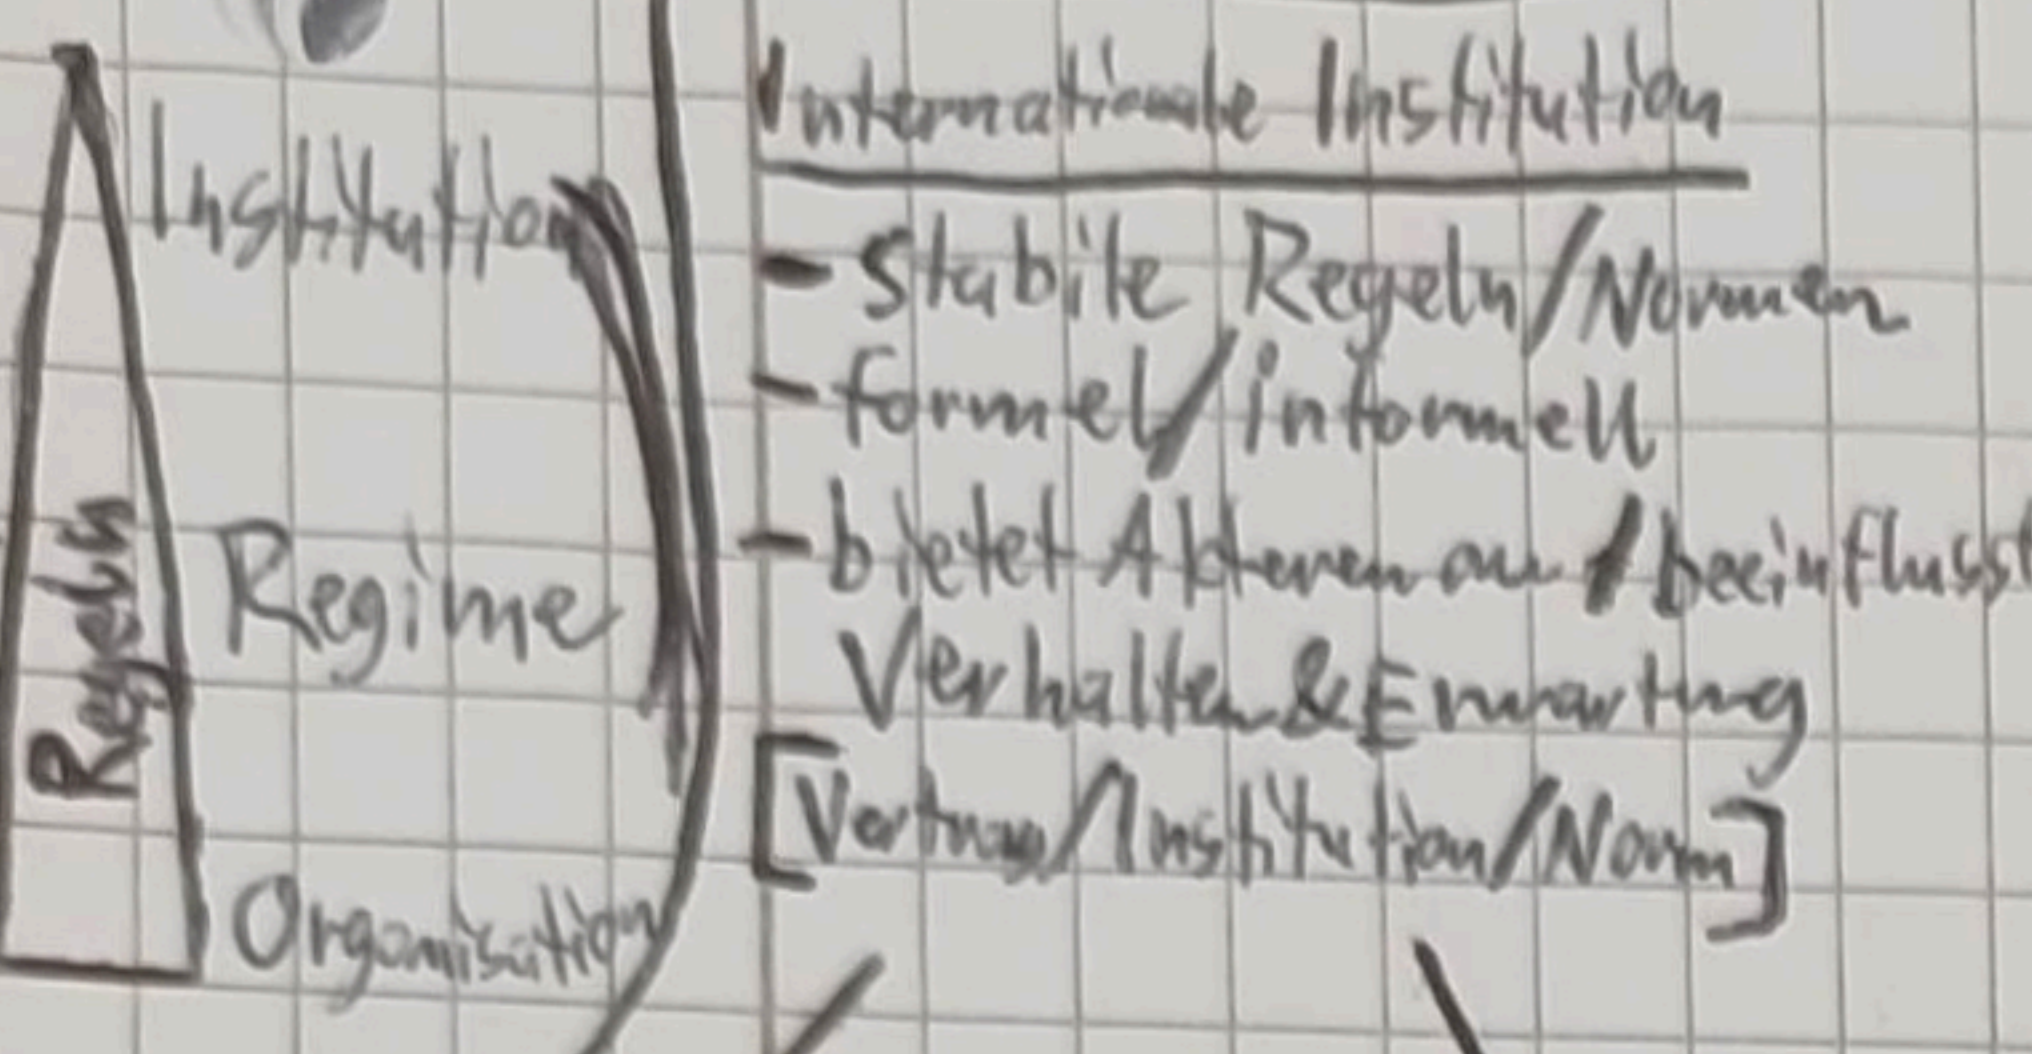 Regeln
Institution
Regime
Organisation
Internationale Institution
- Stabile Regeln/Normen
- formel/informell
- bietet Akteren an / beeinflusst
Verhalten & Erwartung
[Vertrag/Institution/Norm]